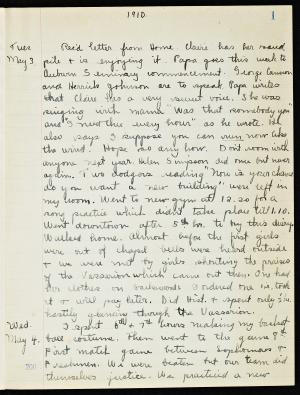 1910.
1
Tues
May 3
Rec'd letter from Home. Claire has her
pile & is enjoying it. Papa goes this week to
Auburn Seminary commencement. George
and Herrick Johnson are to speak. Papa writes
that Claire has a very sweet voice. She was
singing with mama "Was that somebody you"
and "I need thee every hour" as he wrote. He
also says I suppose you can run now like
the wind. Hope so any how. Don't room with
anyone next year. Helen Simpson did once but never
again. Two dodgers reading "Now is your chance
do you want a new building" were left in
my room. Went to new gym at 12.20 for a
song practice which didn't take place till 1.10.
Went downtown after 5th hr. to try this
home. Almost before the first girls
were out of chapel yells were heard outside
& we were met by girls shouting the praises
of the Vassarion which came out then. One had
her clothes on backwards. I ordered one in, took
it & will pay later. Did Hist. & spent only ½ hr.
hastily glancing through the Vassarion.
Wed.
May 4.
I spent 6th & 7th hours making my basket
ball costume. Then went to the game 8th
First match game between Sophomores &
Freshmen. We were beaten but our team did
themselves justice. We practiced a new